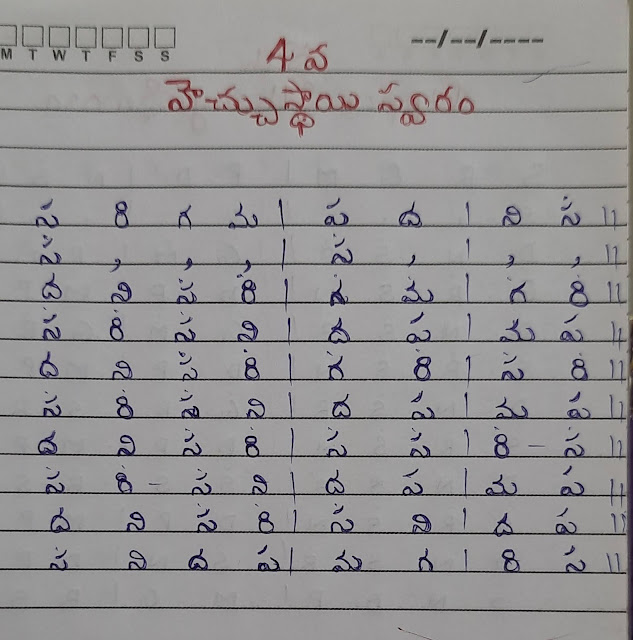 M T W T F S S --/--/----
4 వ
హెచ్చుస్థాయి స్వరం
స రి గ మ | ప ద | ని స ||
స , , , | స , | , , ||
ద ని స రి | గ మ | గ రి ||
స రి స ని | ద ప | మ ప ||
ద ని స రి | గ రి | స రి ||
స రి స ని | ద ప | మ ప ||
ద ని స రి | స స | రి - స ||
స రి - స ని | ద ప | మ ప ||
ద ని స రి | స ని | ద ప ||
స ని ద ప | మ గ | రి స ||